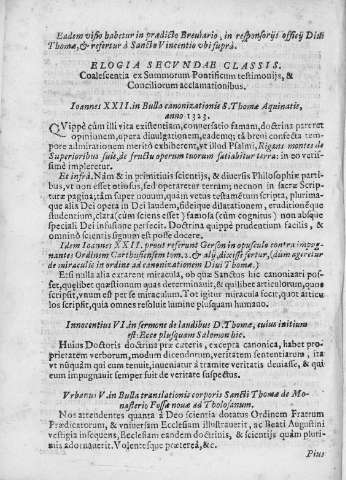 Eadem visio habetur in prædicto Breuiario, in responsorijs officij Diui
Thomæ, & refertur à Sancto Vincentio vbi suprà.
ELOGIA SECVNDAE CLASSIS.
Coalescentia ex Summorum Pontificum testimonijs, &
Conciliorum acclamationibus.
Ioannes XXII. in Bulla canonizationis S. Thomæ Aquinatis,
anno 1323.
QVippè cùm illi vita existentiam, conuersatio famam, doctrina pareret
opinionem, opera diuulgationem, eademq; tâ breui confecta tem-
pore admirationem meritò exhiberent, vt illud Psalmi, Rigans montes de
Superioribus suis, de fructu operum tuorum satiabitur terra: in eo veris-
simè impleretur.
Et infrà. Nàm & in primitiuis scientijs, & diuersis Philosophiæ parti-
bus, vt non esset otiosus, sed operaretur terram; necnon in sacræ Scrip-
turæ pagina; tàm super nouum, quàm vetus testamentum scripta, plurima-
que alia Dei opera in Dei laudem, fideique dilatationem, eruditionẽque
studentium, clara (cùm sciens esset) famosa (cùm cognitus) non absque
speciali Dei infusione perfecit. Doctrina quippè prudentum facilis, &
omninò scientis signum est posse docere.
Idem Ioannes XXII. prout referunt Gerson in opusculo contra impug-
nantes Ordinem Carthusiensem tom. 2. & alij, dixisse fertur, (dùm ageretur
de miraculis in ordine ad canonizationem Diui Thomæ.)
Etsi nulla alia extarent miracula, ob quæ Sanctus hic canonizari pos-
set, quælibet quæstionum quas determinauit, & quilibet articulorum, quos
scripsit, vnum est per se miraculum. Tot igitur miracula fecit, quot articu
los scripsit, quia omnes resoluit lumine plusquam humano.
Innocentius VI. in sermone de laudibus D. Thomæ, cuius initium
est: Ecce plusquam Salomon hic.
Huius Doctoris doctrina præ cæteris, excepta canonica, habet pro-
prietatem verborum, modum dicendorum, veritatem sententiarum, ita
vt nũquàm qui eum tenuit, inueniatur à tramite veritatis deuiasse, & qui
eum impugnauit semper fuit de veritate suspectus.
Vrbanus V. in Bulla translationis corporis Sancti Thomæ de Mo-
nasterio Fossæ nouæ ad Tholosanum.
Nos attendentes quanta à Deo scientia dotatus Ordinem Fratrum
Prædicatorum, & vniuersam Ecclesiam illustrauerit, ac Beati Augustini
vestigia insequens, Ecclesiam eandem doctrinis, & scientijs quàm pluri-
mis adornauerit. Volentesque prætereà, &c.
Pius